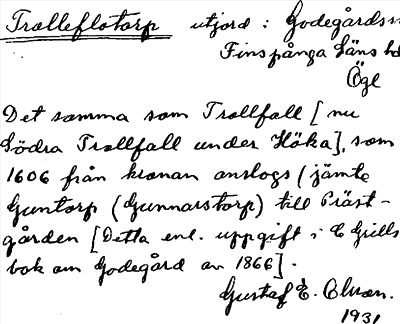 Trolleflotorp utjord i Godegårds s
Finspånga Läns hd
Ögl
Det samma som Trollfall [nu
Södra Trollfall under Höka], som
1606 från kronan anslogs (jämte
Guntorp (Gunnarstorp) till Präst-
gården [Detta enl. uppgift i C Grills
bok om Godegård av 1866].
Gustaf E.
1931